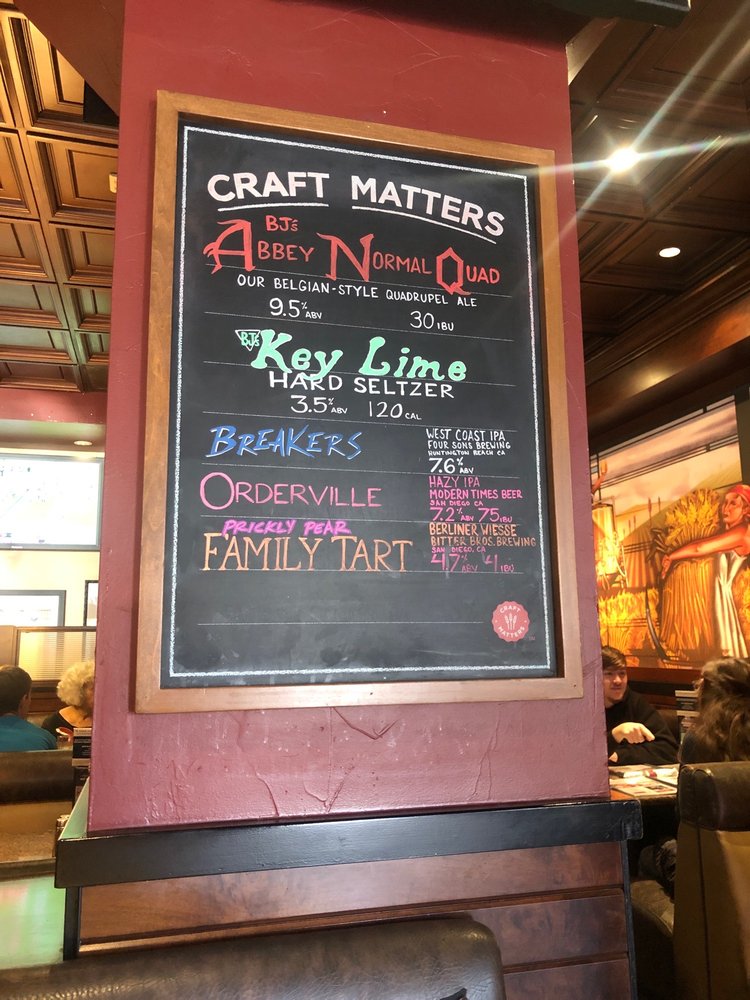 CRAFT MATTERS
BJ's
ABBEY NORMAL QUAD
OUR BELGIAN-STYLE QUADRUPEL ALE
9.5% ABV 30 IBU
BJ's Key Lime
HARD SELTZER
3.5% ABV 120 CAL
BREAKERS
WEST COAST IPA
FOUR SONS BREWING
HUNTINGTON BEACH CA
7.6% ABV
ORDERVILLE
HAZY IPA
MODERN TIMES BEER
SAN DIEGO CA
7.2% ABV 75 IBU
PRICKLY PEAR
FAMILY TART
BERLINER WIESSE
BITTER BROS. BREWING
SAN DIEGO, CA
4.7% ABV 4 IBU
CRAFT
MATTERS